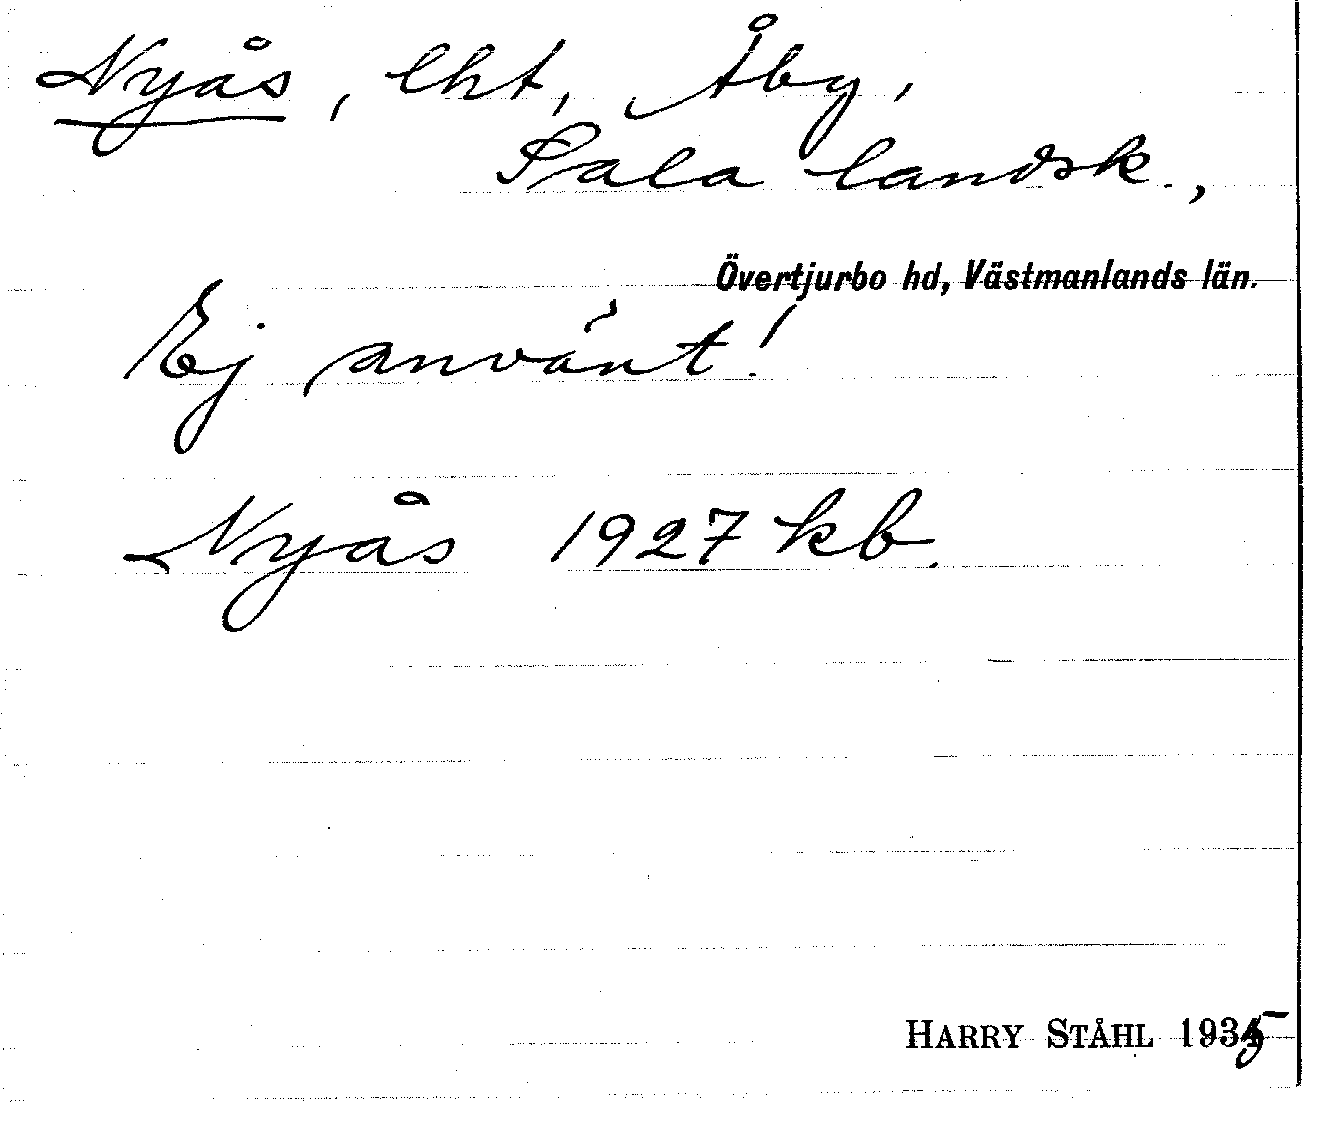 Nyås, lht, Åby,
Sala landsk.,
Övertjurbo hd, Västmanlands län.
Ej använt!
Nyås 1927 kb.
HARRY STÅHL 1935